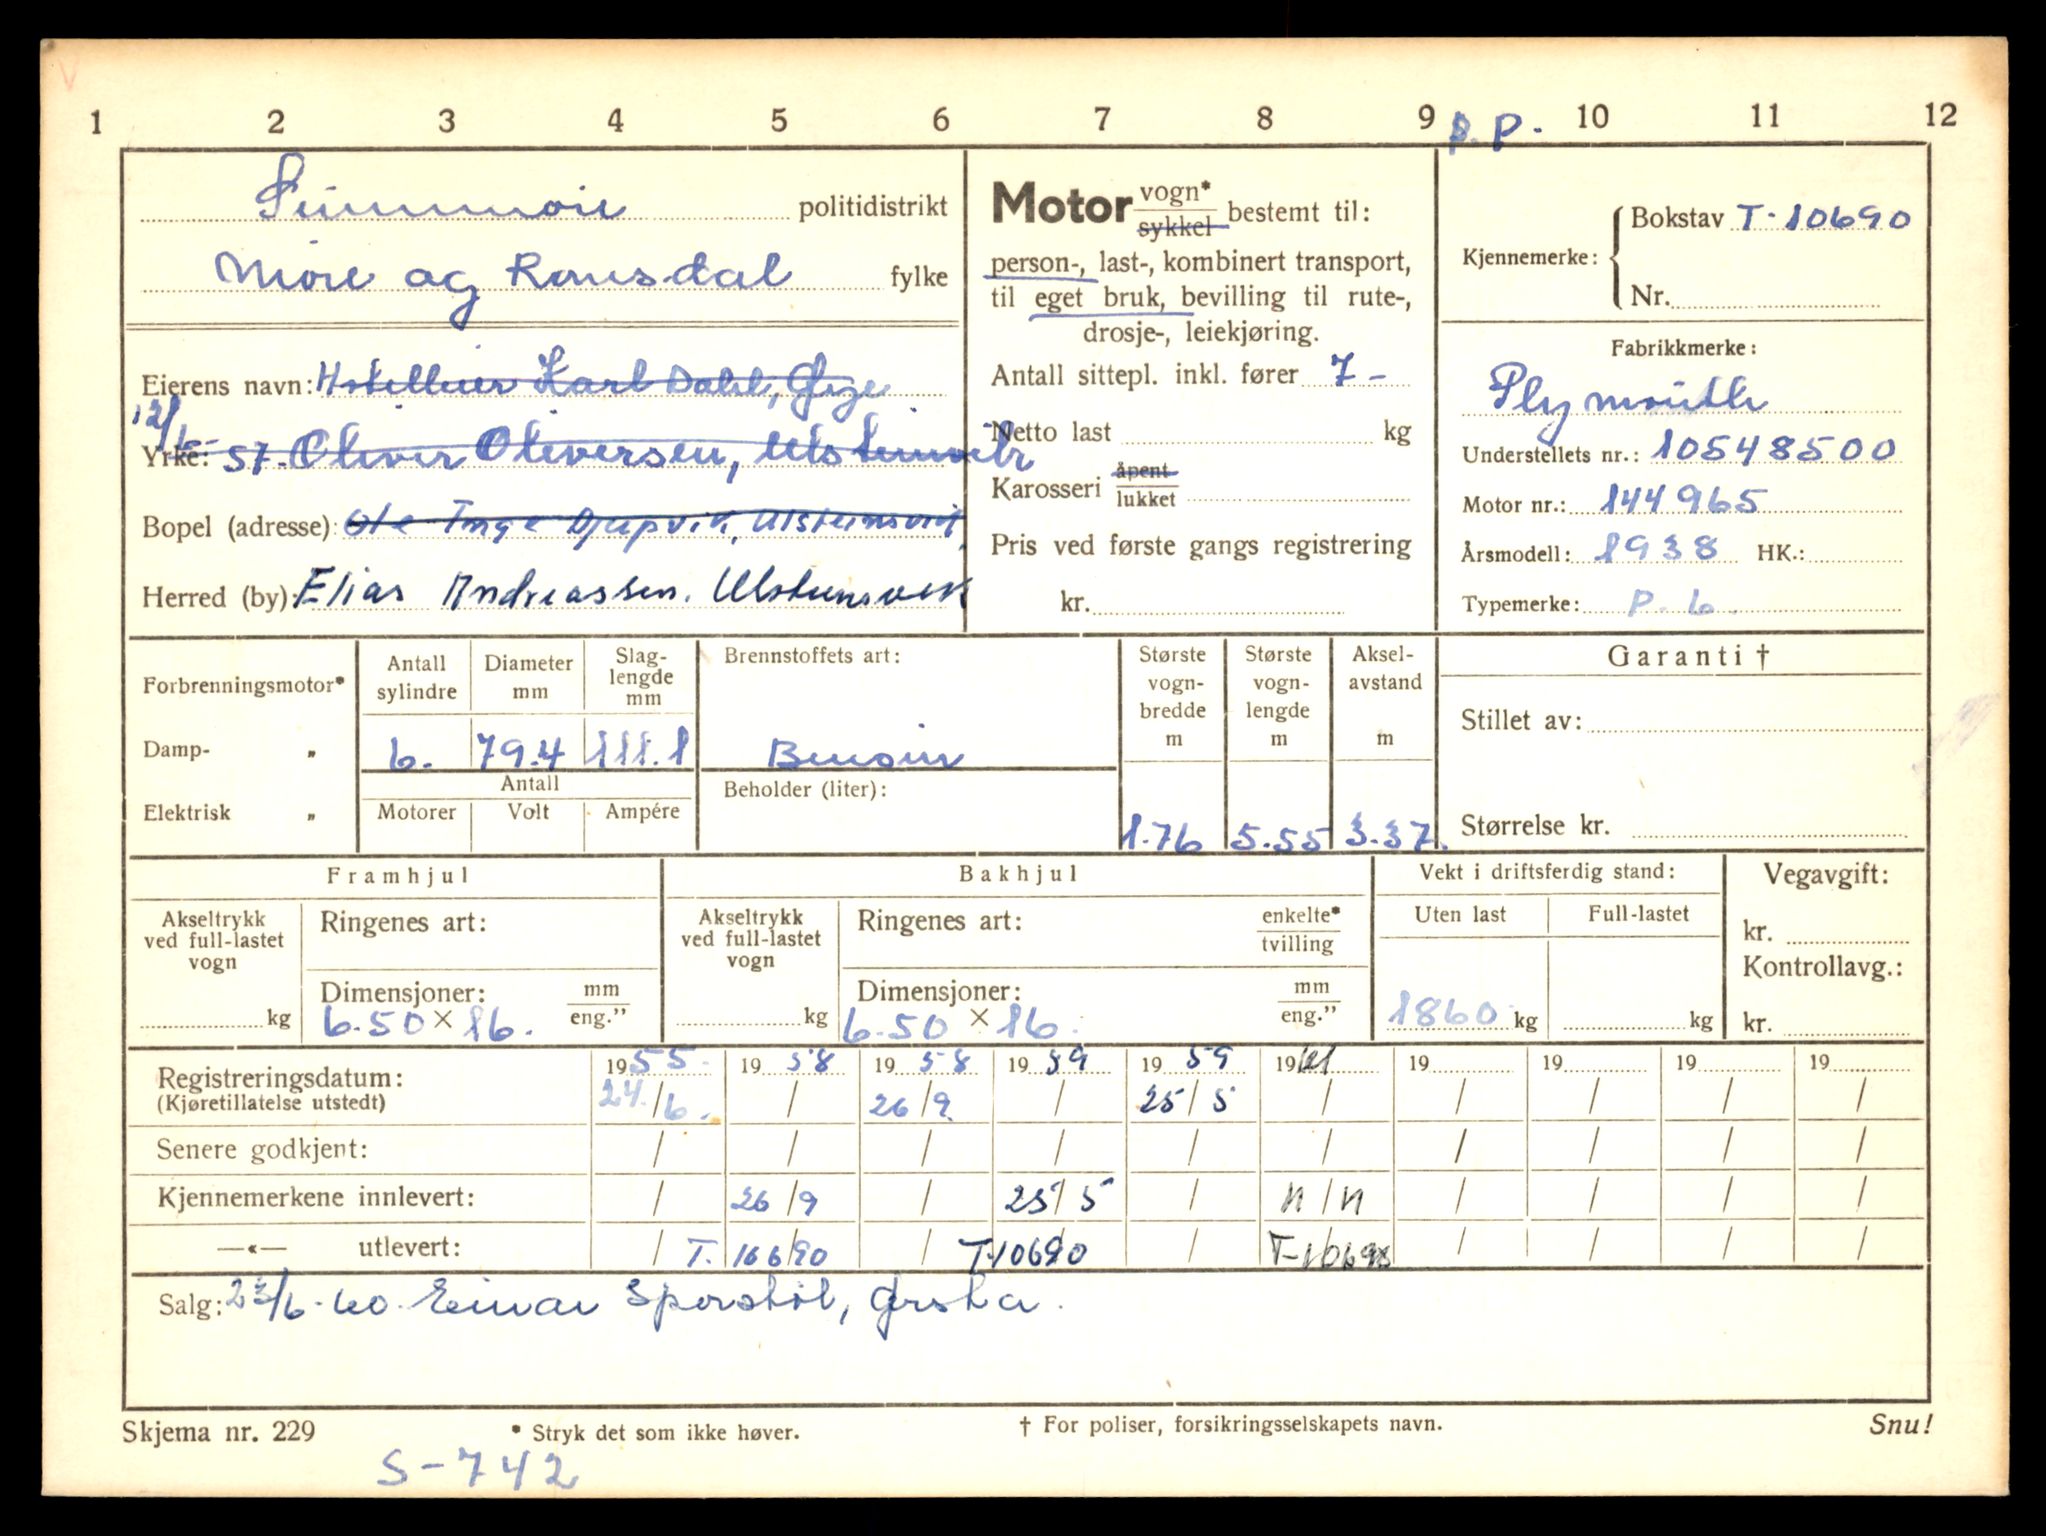 1 2 3 4 5 6 7 8 9 10 11 12
p. P.
Sunnmøre politidistrikt
Møre og Romsdal fylke
Eierens navn: Hotelleier Karl Dahl, Geige
12/6-
Yrke: 57. Oliver Oliversen, Ulsteinvik
Bopel (adresse): Ole Inge Djupvik, Ulsteinsvik
Herred (by): Elias Andreassen. Ulsteinsvik
Motor vogn* sykkel bestemt til:
person-, last-, kombinert transport,
til eget bruk, bevilling til rute-,
drosje-, leiekjøring.
Antall sittepl. inkl. fører 7-
Netto last kg
Karosseri åpent lukket
Pris ved første gangs registrering
kr.
Kjennemerke: Bokstav T-10690
Nr.
Fabrikkmerke:
Plymouth
Understellets nr.: 10548500
Motor nr.: 144965
Årsmodell: 1938 HK.:
Typemerke: P. 6.
Forbrenningsmotor*
Damp- „
Elektrisk „
Antall sylindre
Diameter mm
Slaglengde mm
6. 79.4 111.1
Antall
Motorer Volt Ampére
Brennstoffets art:
Bensin
Beholder (liter):
Største vognbredde m
Største vognlengde m
Akselavstand m
1.76 5.55 3.37.
Garanti †
Stillet av:
Størrelse kr.
Framhjul
Akseltrykk ved full-lastet vogn
kg
Ringenes art:
Dimensjoner: mm eng.”
6.50 × 16.
Bakhjul
Akseltrykk ved full-lastet vogn
kg
Ringenes art: enkelte* tvilling
Dimensjoner: mm eng.”
6.50 × 16.
Vekt i driftsferdig stand:
Uten last Full-lastet
1860 kg kg
Vegavgift:
kr.
Kontrollavg.:
kr.
1955. 1958 1958 1959 1959 1961 19 19 19 19
Registreringsdatum:
(Kjøretillatelse utstedt) 24/6. / 26/9. / 25/5 / / / / /
Senere godkjent: / / / / / / / / / /
Kjennemerkene innlevert: / 26/9 / 25/5 / 11/11 / / / /
—«— utlevert: / T. 10690 / T.10690 / T-10690 / / / /
Salg: 23/6-60. Einar Sporstøl, Ørsta.
Skjema nr. 229 * Stryk det som ikke høver. † For poliser, forsikringsselskapets navn. Snu!
S-742